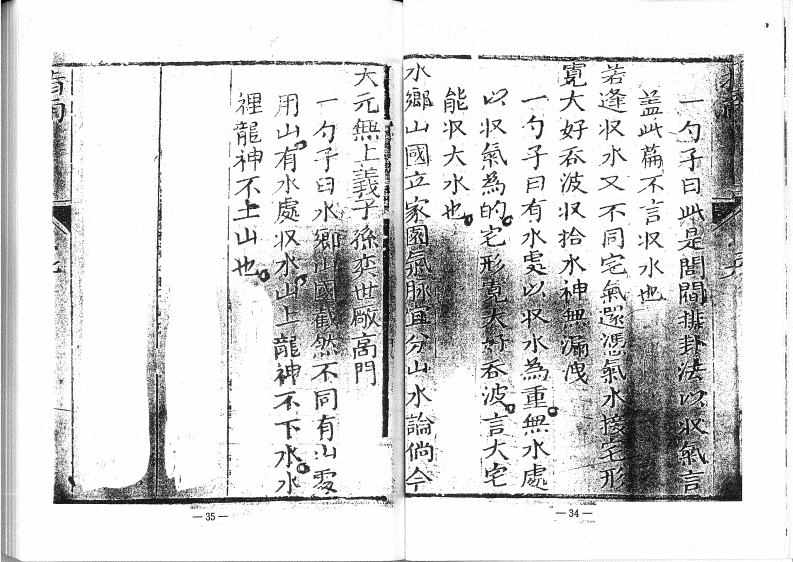 一勺子曰此是閭閻排卦法以収氣言
盖此篇不言収水也
若逢収水又不同宅氣還憑氣水接宅形
寛大好吞波収拾水神無漏洩
一勺子曰有水處以収水為重無水處
以収氣為的宅形寛大好吞波言大宅
能収大水也
水鄉山國立家園氣脉宜分山水論倘今
— 34 —
大元無上義子孫奕世厰高門
一勺子曰水鄉山國截然不同有山處
用山有水處収水山上龍神不下水水
裡龍神不上山也
— 35 —